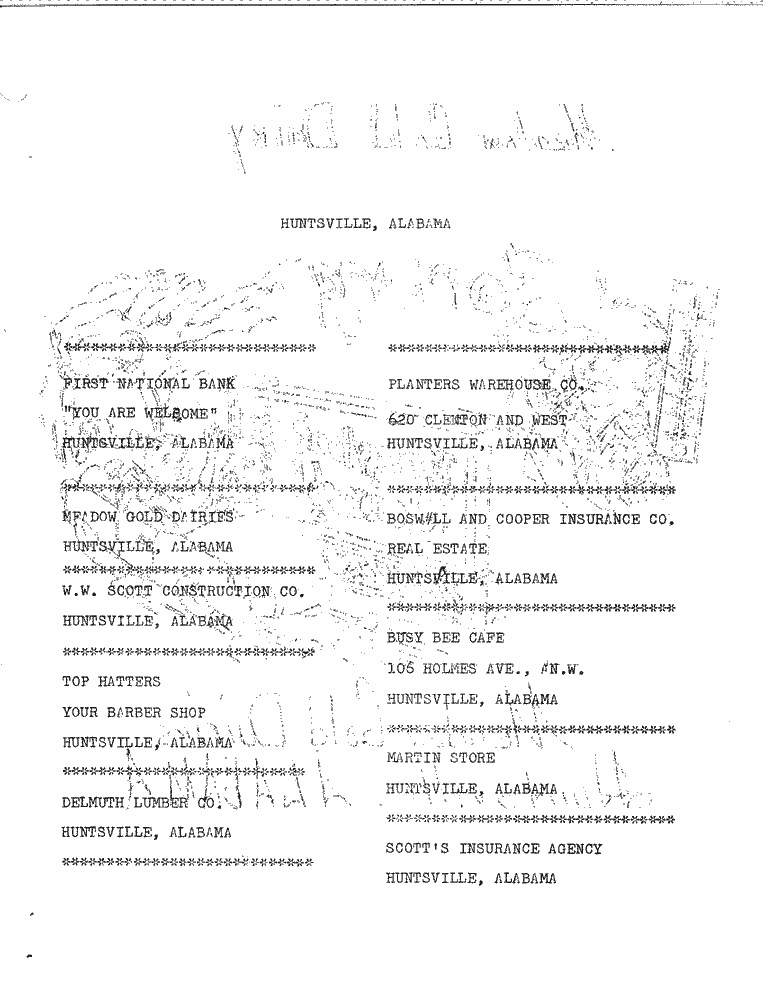 HUNTSVILLE, ALABAMA
********************************
FIRST NATIONAL BANK
"YOU ARE WELCOME"
HUNTSVILLE, ALABAMA
********************************
MEADOW GOLD DAIRIES
HUNTSVILLE, ALABAMA
********************************
W.W. SCOTT CONSTRUCTION CO.
HUNTSVILLE, ALABAMA
********************************
TOP HATTERS
YOUR BARBER SHOP
HUNTSVILLE, ALABAMA
********************************
DELMUTH LUMBER CO.
HUNTSVILLE, ALABAMA
********************************
********************************
PLANTERS WAREHOUSE CO.
620 CLINTON AND WEST
HUNTSVILLE, ALABAMA
********************************
BOSW#LL AND COOPER INSURANCE CO.
REAL ESTATE
HUNTSVILLE, ALABAMA
********************************
BUSY BEE CAFE
106 HOLMES AVE., #N.W.
HUNTSVILLE, ALABAMA
********************************
MARTIN STORE
HUNTSVILLE, ALABAMA
********************************
SCOTT'S INSURANCE AGENCY
HUNTSVILLE, ALABAMA